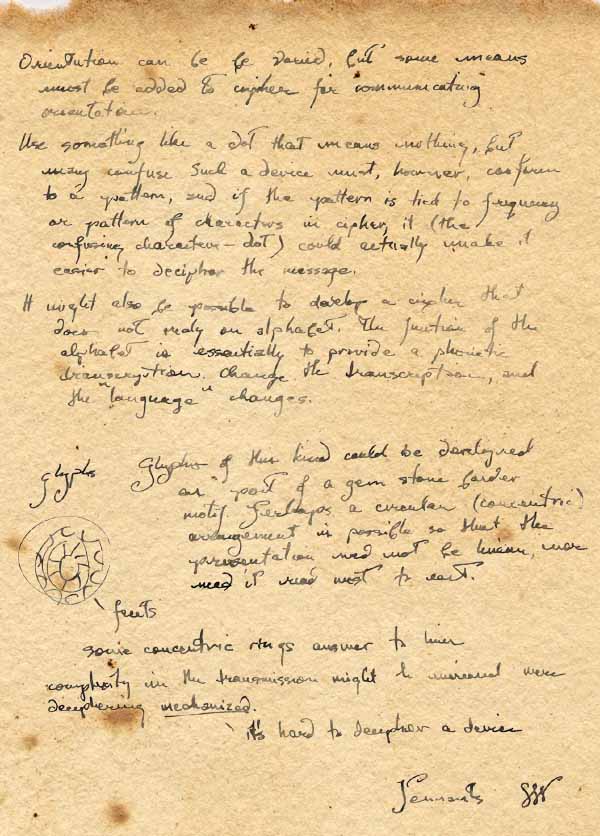 Orientation can be be varied, but some means
must be added to cipher for communicating
orientation.
Use something like a dot that means nothing, but
may confuse such a device must, however, conform
to a pattern, and if the pattern is tied to frequency
or pattern of characters in cipher, it (the
confusing character – dot) could actually make it
easier to decipher the message.
It might also be possible to develop a cipher that
does not rely on alphabet. The function of the
alphabet is essentially to provide a phonetic
transcription. Change the transcription, and
the "language" changes.
glyphs
Glyphs of this kind could be developed
as part of a gem stone border
motif Perhaps a circular (concentric)
arrangement is possible so that the
presentation need not be linear, nor
need it read west to east.
facets
some concentric rings answer to
complexity in the transmission might be increased were
deciphering mechanized.
it's hard to decipher a device